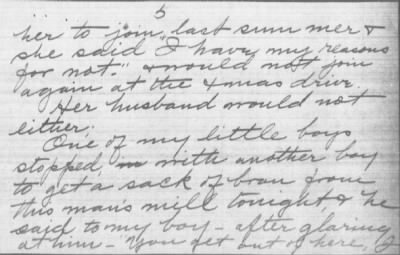 5
her to join, last summer &
she said "I have my reasons
for not." & would not join
again at the Xmas drive.
Her husband would not
either.
One of my little boys
stopped, with another boy
to get a sack of bran from
this man's mill tonight & he
said to my boy - after glaring
at him - "You get out of here, I